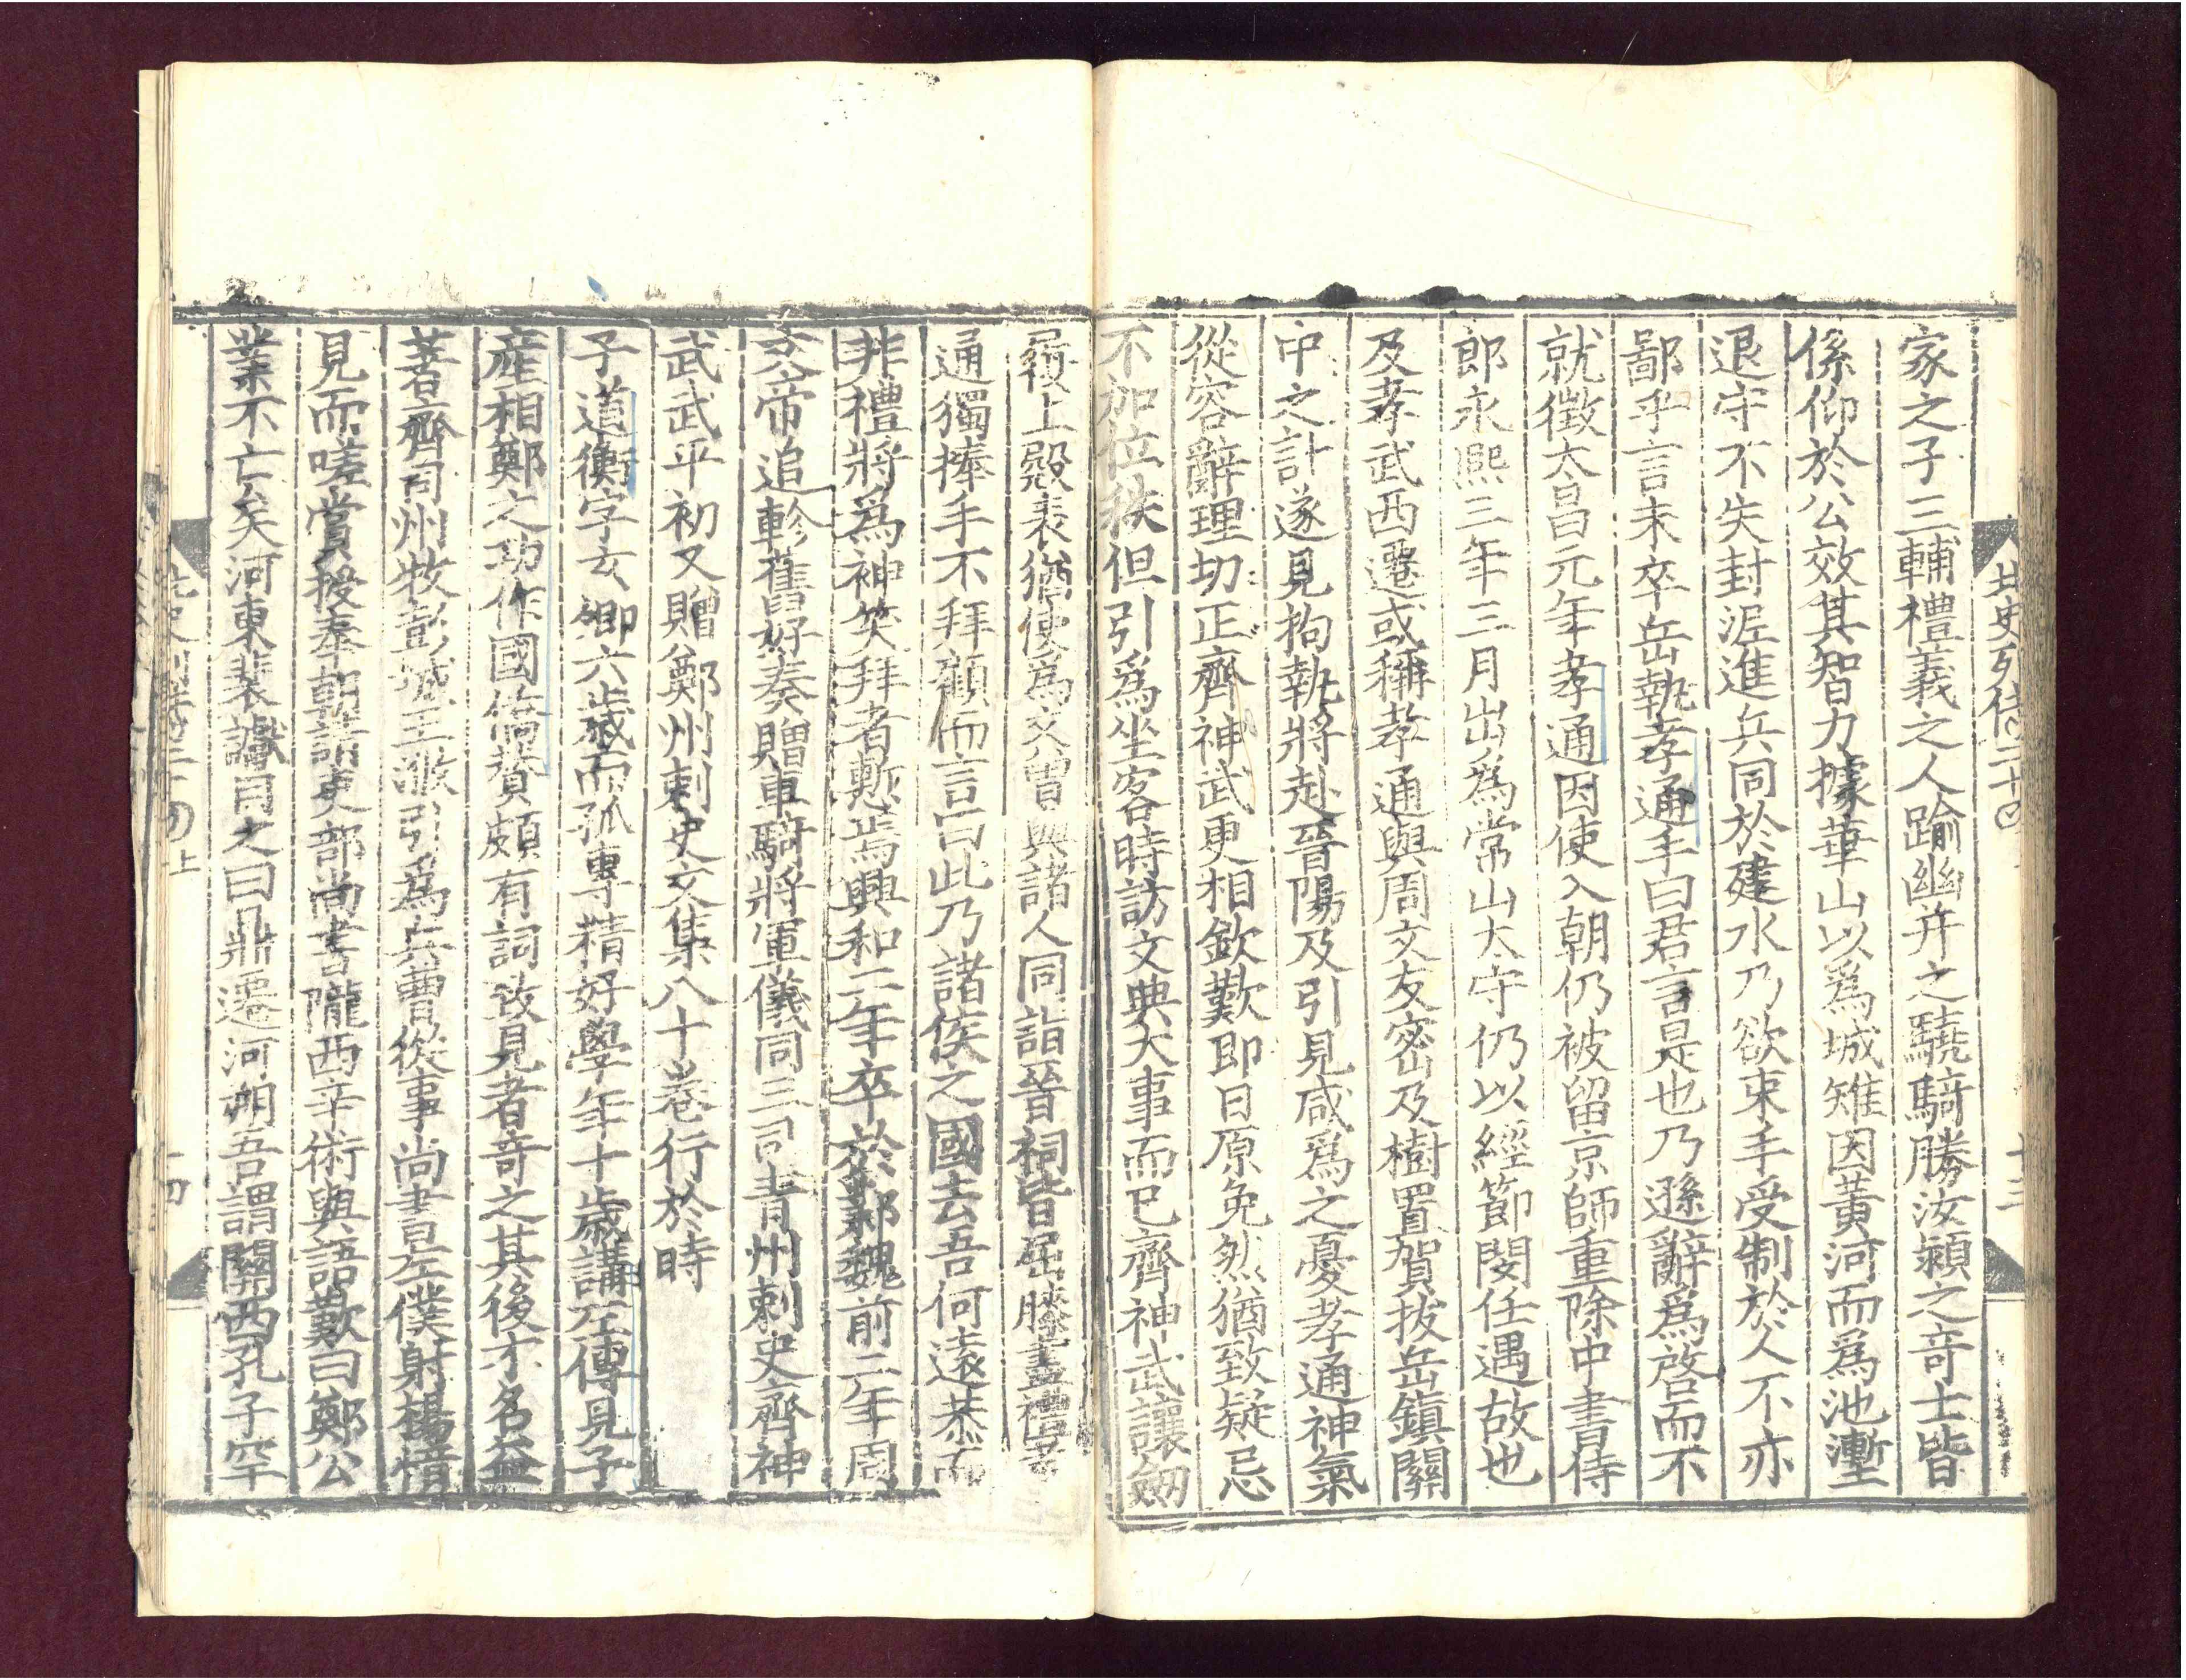 北史列傳二十四
十三
家之子三輔禮義之人踰幽并之驍騎勝汝潁之奇士皆
係仰於公效其智力據華山以爲城雉因黃河而爲池壍
退守不失封泥進兵同於建水乃欲束手受制於人不亦
鄙乎言未卒岳執孝通手曰君言是也乃遜辭爲啓而不
就徵太昌元年孝通因使入朝仍被留京師重除中書侍
郎永熙三年三月出爲常山太守仍以經節閔任遇故也
及孝武西遷或稱孝通與周文友密及樹置賀拔岳鎮關
中之計遂見拘執將赴晉陽及引見咸爲之憂孝通神氣
從容辭理切正齊神武更相欽歎即日原免然猶致疑忌
不加位秩但引爲坐客時訪文典大事而已齊神武讓劒
履上殿表猶使爲文曾與諸人同詣晉祠皆屈膝盡禮孝
通獨捧手不拜顧而言曰此乃諸侯之國去吾何遠恭而
非禮將爲神笑拜者慙焉興和二年卒於鄴魏前二年周
文帝追軫舊好奏贈車騎將軍儀同三司青州刺史齊神
武武平初又贈鄭州刺史文集八十卷行於時
子道衡字玄卿六歲而孤專精好學年十歲講左傳見子
產相鄭之功作國僑贊頗有詞致見者奇之其後才名益
著齊司州牧彭城王浟引爲兵曹從事尚書左僕射楊愔
見而嗟賞授奉朝請吏部尚書隴西辛術與語歎曰鄭公
業不亡矣河東裴讞目之曰鼎遷河朔吾謂關西孔子罕
北史列傳二十四上
十四